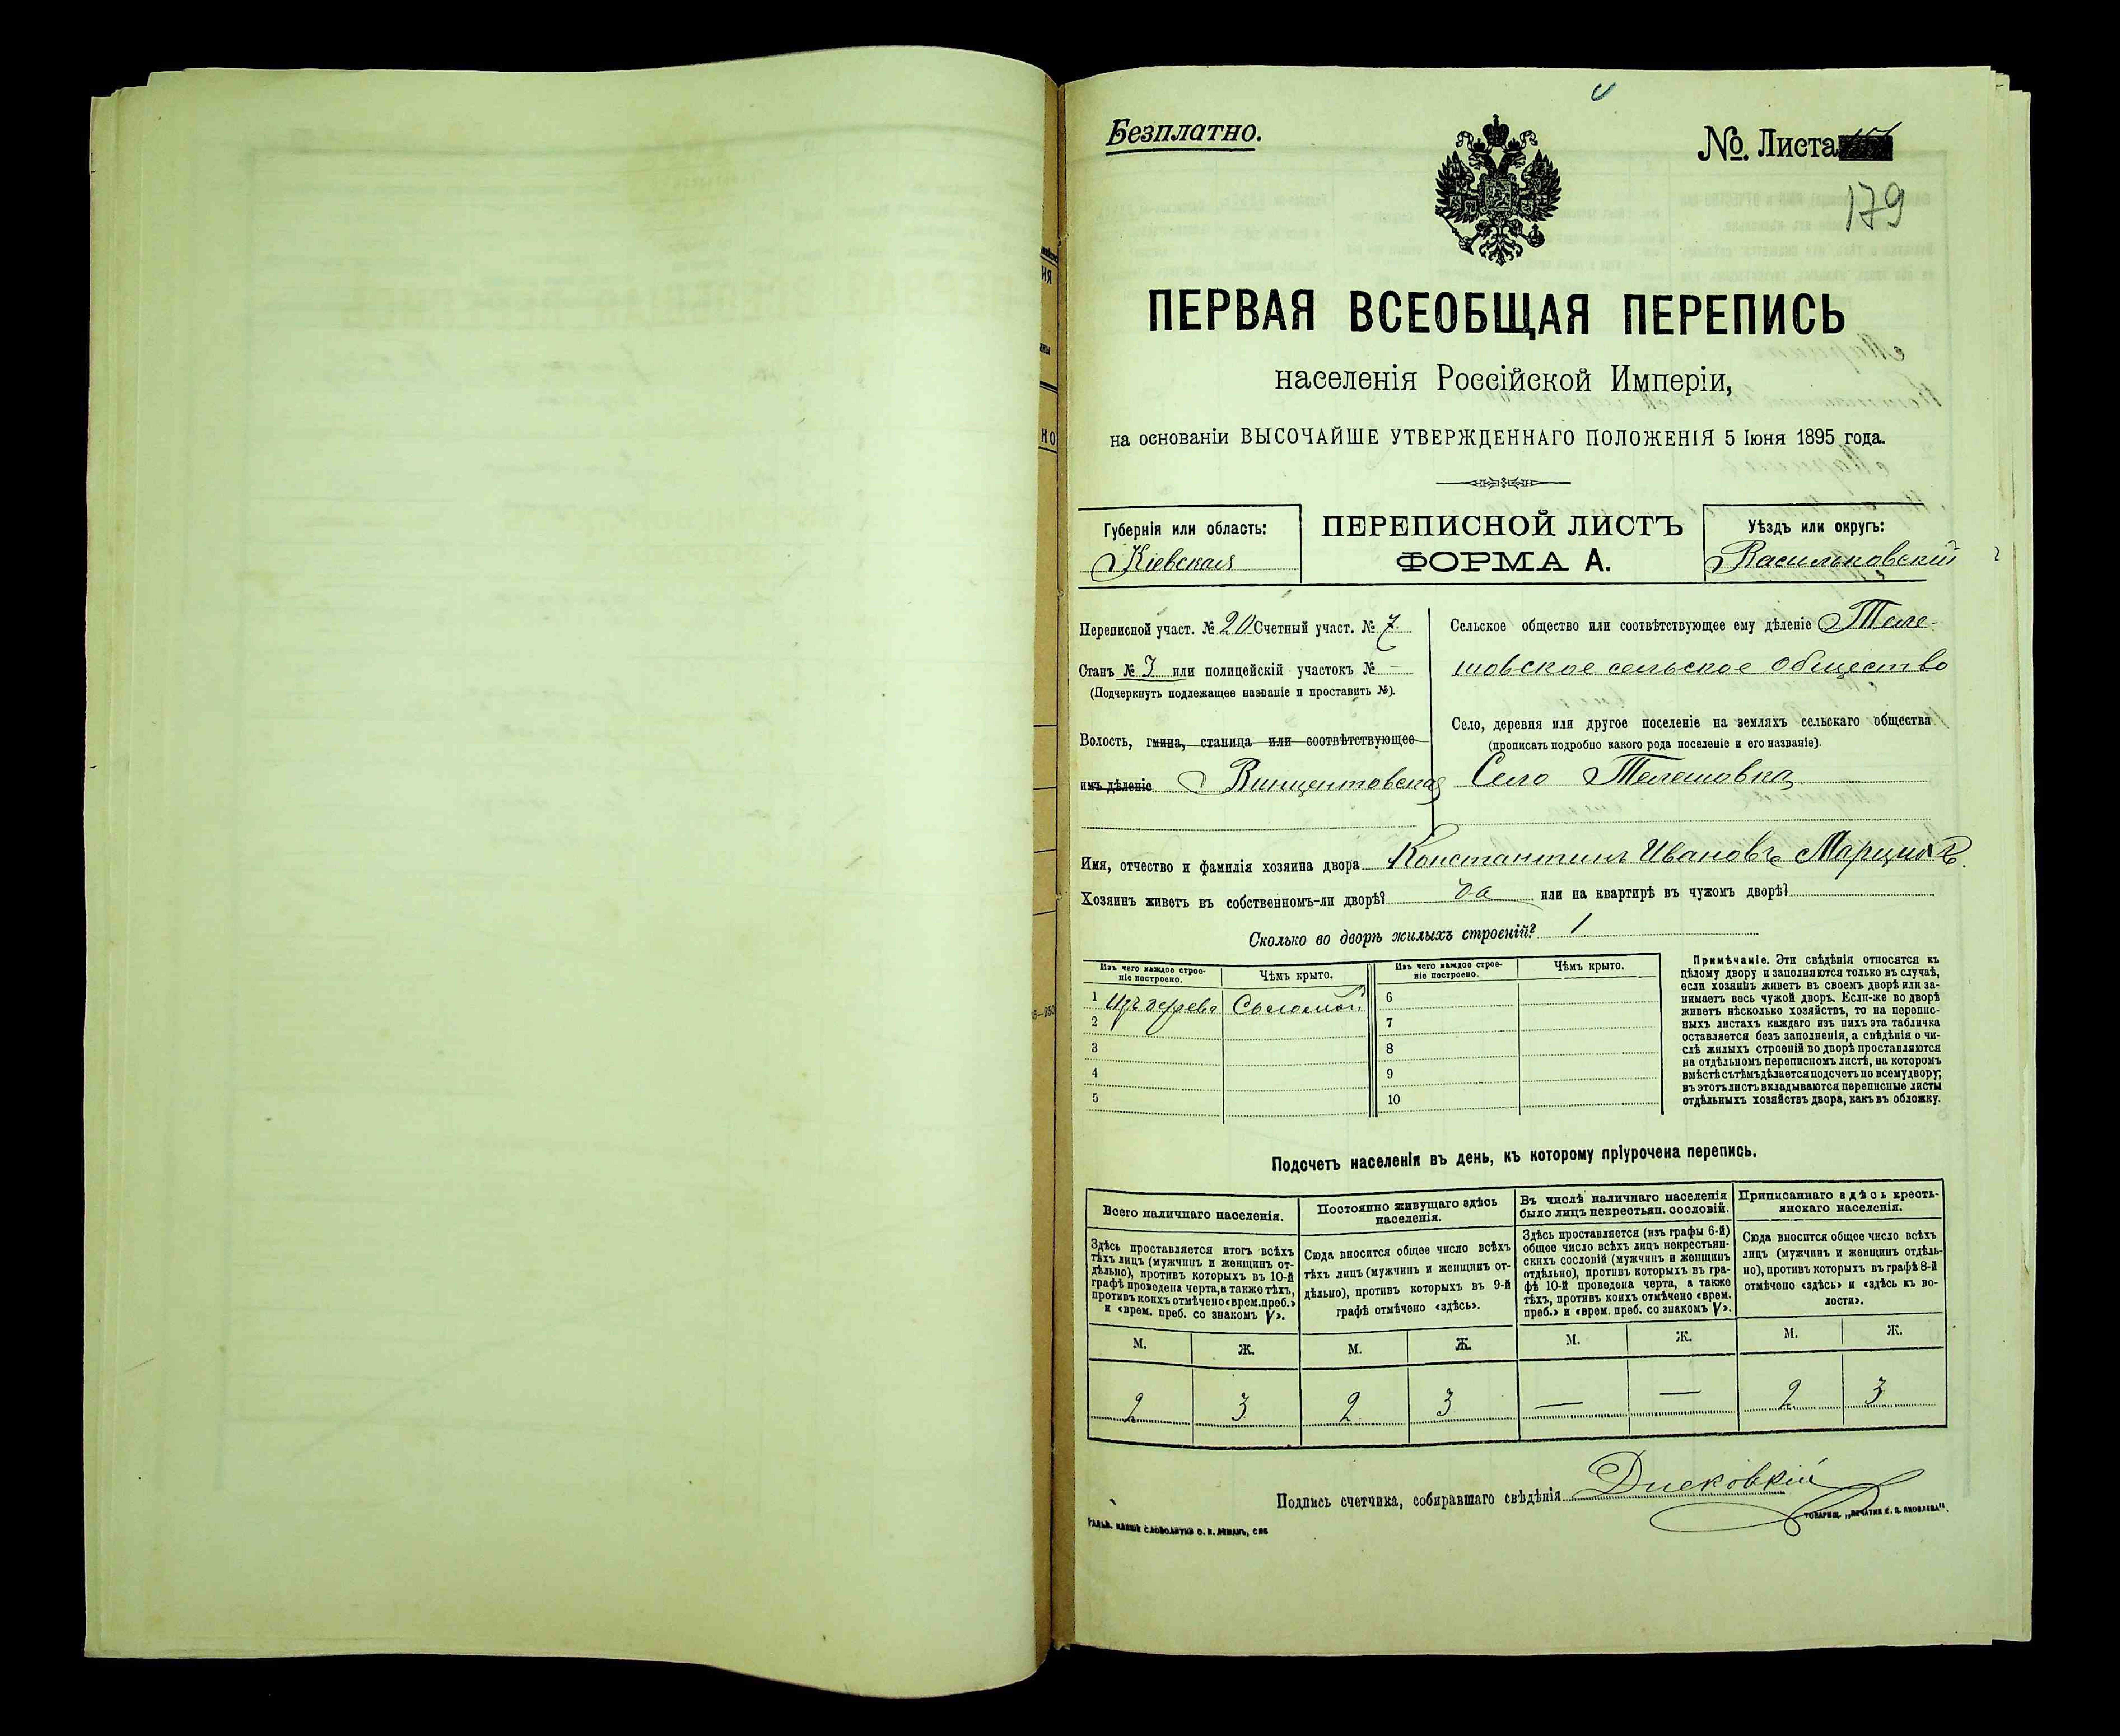 Безплатно.
№ Листа
179
ПЕРВАЯ ВСЕОБЩАЯ ПЕРЕПИСЬ
населенія Россійской Имперіи,
на основаніи ВЫСОЧАЙШЕ УТВЕРЖДЕННАГО ПОЛОЖЕНІЯ 5 Іюня 1895 года.
Губернія или область:
Кіевская
ПЕРЕПИСНОЙ ЛИСТЪ
ФОРМА А.
Уѣздъ или округъ:
Васильковскій
Переписной участ. № 20 Счетный участ. № 7
Станъ № 3 или полицейскій участокъ № -
(Подчеркнуть подлежащее названіе и проставить №).
Волость, гмина, станица или соотвѣтствующее
имъ дѣленіе Винцентовская
Сельское общество или соотвѣтствующее ему дѣленіе Теле-
шовское сельское общество
Село, деревня или другое поселеніе на земляхъ сельскаго общества
(прописать подробно какого рода поселеніе и его названіе).
Село Телешовка
Имя, отчество и фамилія хозяина двора Константинъ Ивановъ
Хозяинъ живетъ въ собственномъ-ли дворѣ? да или на квартирѣ въ чужомъ дворѣ?
Сколько во дворѣ жилыхъ строеній? 1
Изъ чего каждое строе-
ніе построено.
Чѣмъ крыто.
Изъ чего каждое строе-
ніе построено.
Чѣмъ крыто.
1 Изъ дерева Соломой 6
2 7
3 8
4 9
5 10
Примѣчаніе. Эти свѣдѣнія относятся къ
цѣлому двору и заполняются только въ случаѣ,
если хозяинъ живетъ въ своемъ дворѣ или за-
нимаетъ весь чужой дворъ. Если-же во дворѣ
живетъ нѣсколько хозяйствъ, то на перепис-
ныхъ листахъ каждаго изъ нихъ эта табличка
оставляется безъ заполненія, а свѣдѣнія о чи-
слѣ жилыхъ строеній во дворѣ проставляются
на отдѣльномъ переписномъ листѣ, на которомъ
вмѣстѣ съ тѣмъ дѣлается подсчетъ по всему двору;
въ этотъ листъ вкладываются переписные листы
отдѣльныхъ хозяйствъ двора, какъ въ обложку.
Подсчетъ населенія въ день, къ которому пріурочена перепись.
Всего наличнаго населенія.
Постоянно живущаго здѣсь
населенія.
Въ числѣ наличнаго населенія
было лицъ некрестьян. сословій.
Приписаннаго здѣсь кресть-
янскаго населенія.
Здѣсь проставляется итогъ всѣхъ
тѣхъ лицъ (мужчинъ и женщинъ от-
дѣльно), противъ которыхъ въ 10-й
графѣ проведена черта, а также тѣхъ,
противъ коихъ отмѣчено «врем. преб.»
и «врем. преб. со знакомъ V».
Сюда вносится общее число всѣхъ
тѣхъ лицъ (мужчинъ и женщинъ от-
дѣльно), противъ которыхъ въ 9-й
графѣ отмѣчено «здѣсь».
Здѣсь проставляется (изъ графы 6-й)
общее число всѣхъ лицъ некрестьян-
скихъ сословій (мужчинъ и женщинъ
отдѣльно), противъ которыхъ въ гра-
фѣ 10-й проведена черта, а также
тѣхъ, противъ коихъ отмѣчено «врем.
преб.» и «врем. преб. со знакомъ V».
Сюда вносится общее число всѣхъ
лицъ (мужчинъ и женщинъ отдѣль-
но), противъ которыхъ въ графѣ 8-й
отмѣчено «здѣсь» и «здѣсь къ во-
лости».
М. Ж. М. Ж. М. Ж. М. Ж.
2 3 2 3 — — 2 3
Подпись счетчика, собиравшаго свѣдѣнія